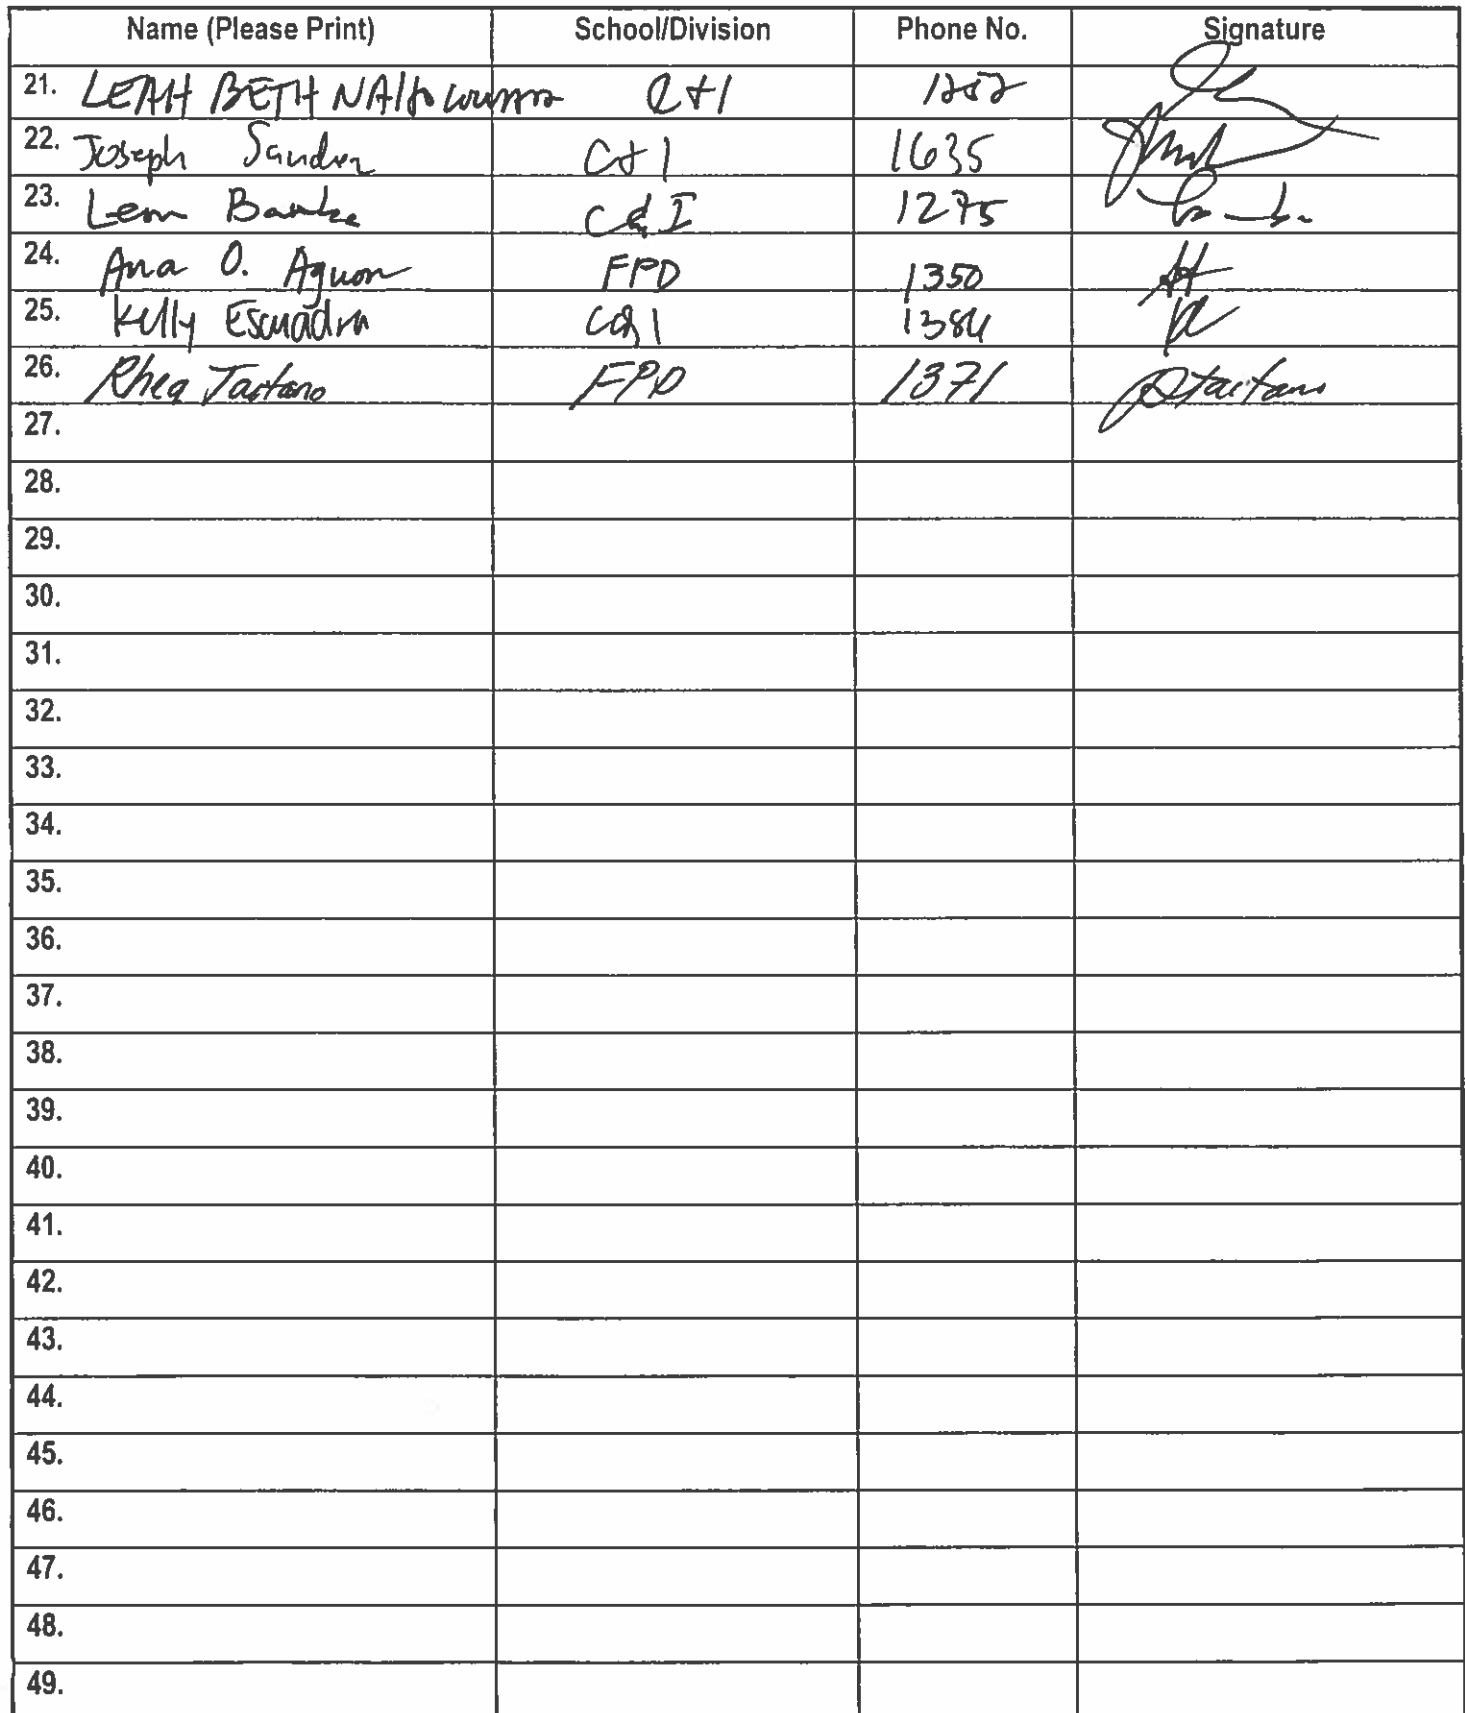 Name (Please Print) School/Division Phone No. Signature
21. LEAH BETH C+I
22. Joseph C+I 1635
23. C&I 1275
24. Ana O. Aguon FPD 1350
25. Kelly Escuadra C&I 1384
26. Rhea Taitano FPD 1371 Rtaitano
27.
28.
29.
30.
31.
32.
33.
34.
35.
36.
37.
38.
39.
40.
41.
42.
43.
44.
45.
46.
47.
48.
49.